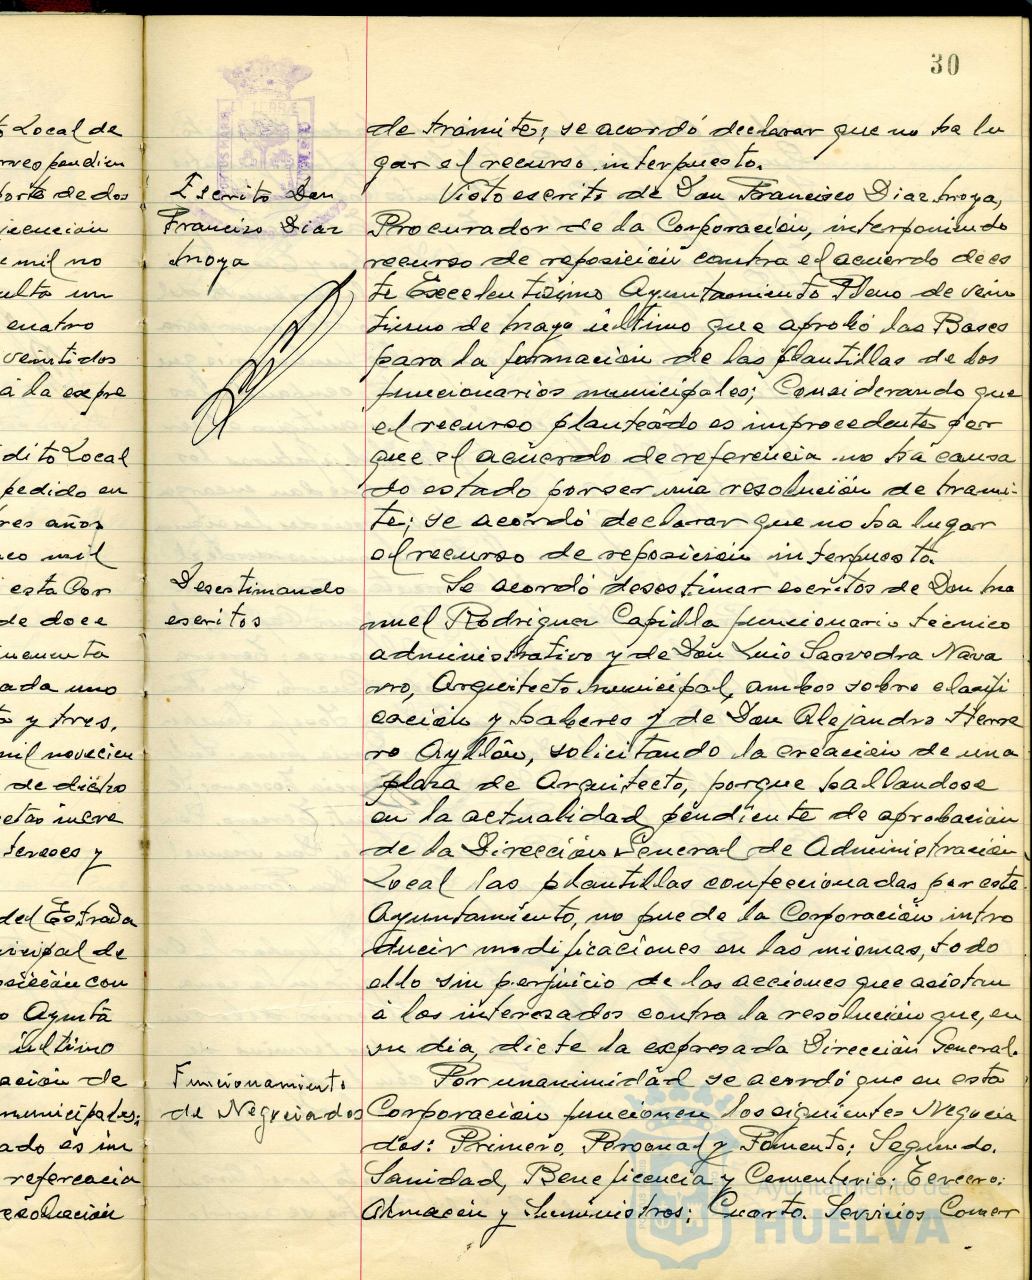 30
to Local de
rrespondien
porte de dos
ecución
e mil no
ulta un
cuatro
veintidos
á la expre
dito Local
pedido en
tres años
nco mil
esta Cor
de doce
ncuenta
ada uno
y tres,
mil novecien
de dicho
etas incre
tereses y
del Estrada
nicipal de
osición con
o Ayuntâ
último
ación de
municipales;
ado es im
referencia
resolución
Escrito Don
Francisco Diaz
Moya
Desestimando
escritos
Funcionamiento
de Negociados
de trámite; se acordó declarar que no ha lu
gar el recurso interpuesto.
Visto escrito de Don Francisco Diaz Moya,
Procurador de la Corporación, interponiendo
recurso de reposición contra el acuerdo de es
te Excelentísimo Ayuntamiento Pleno de vein
tiuno de Mayo último que aprobó las Bases
para la formación de las plantillas de los
funcionarios municipales; Considerando que
el recurso planteado es improcedente por
que el acuerdo de referencia no ha causa
do estado por ser una resolución de trami-
te; se acordó declarar que no ha lugar
el recurso de reposición interpuesto.
Se acordó desestimar escritos de Don Ma
nuel Rodriguez Capilla funcionario técnico
administrativo y de Don Luis Saavedra Nava
rro, Arquitecto Municipal, ambos sobre clasifi
cación y haberes y de Don Alejandro Herre
ro Ayllón, solicitando la creación de una
plaza de Arquitecto, porque hallandose
en la actualidad pendiente de aprobación
de la Dirección General de Administración
Local las plantillas confeccionadas por este
Ayuntamiento, no puede la Corporación intro
ducir modificaciones en las mismas, todo
ello sin perjuicio de las acciones que asistan
á los interesados contra la resolución que, en
su dia, dicte la expresada Dirección General.
Por unanimidad se acordó que en esta
Corporación funcionen los siguientes Negocia
dos: Primero, Personal y Fomento; Segundo.
Sanidad, Beneficencia y Cementerio; Tercero:
Almacén y Suministros; Cuarto. Servicios Comer
Ayuntamiento de
HUELVA